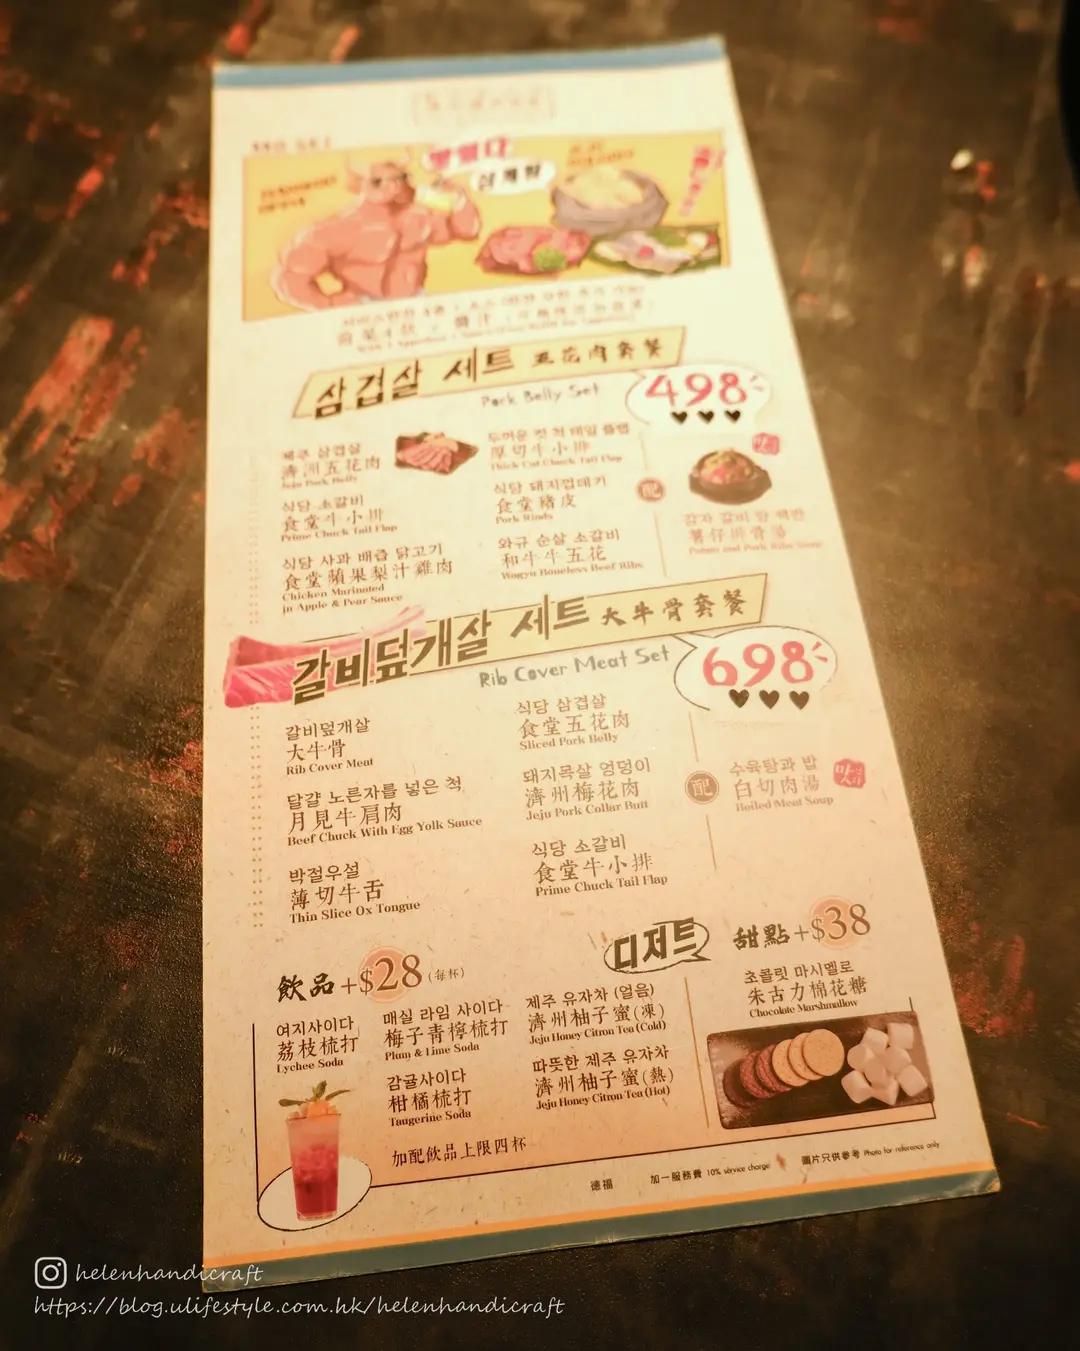 삼겹살 세트 五花肉套餐
Pork Belly Set
498
제주 삼겹살
濟洲五花肉
Jeju Pork Belly
식당 소갈비
食堂牛小排
Prime Chuck Tail Flap
식당 사과 배즙 닭고기
食堂蘋果梨汁雞肉
Chicken Marinated
in Apple & Pear Sauce
두꺼운 컷 척 테일 플랩
厚切牛小排
Thick Cut Chuck Tail Flap
식당 돼지껍데기
食堂豬皮
Pork Rinds
와규 순살 소갈비
和牛牛五花
Wagyu Boneless Beef Ribs
配
감자 갈비 탕 백반
薯仔排骨湯
Potato and Pork Ribs Soup
갈비덮개살 세트 大牛骨套餐
Rib Cover Meat Set
698
갈비덮개살
大牛骨
Rib Cover Meat
달걀 노른자를 넣은 척
月見牛肩肉
Beef Chuck With Egg Yolk Sauce
박절우설
薄切牛舌
Thin Slice Ox Tongue
식당 삼겹살
食堂五花肉
Sliced Pork Belly
돼지목살 엉덩이
濟州梅花肉
Jeju Pork Collar Butt
식당 소갈비
食堂牛小排
Prime Chuck Tail Flap
配
수육탕과 밥
白切肉湯
Boiled Meat Soup
飲品+$28(每杯)
여지사이다
荔枝梳打
Lychee Soda
매실 라임 사이다
梅子青檸梳打
Plum & Lime Soda
감귤사이다
柑橘梳打
Tangerine Soda
제주 유자차 (얼음)
濟州柚子蜜(凍)
Jeju Honey Citron Tea (Cold)
따뜻한 제주 유자차
濟州柚子蜜(熱)
Jeju Honey Citron Tea (Hot)
加配飲品上限四杯
디저트
甜點+$38
초콜릿 마시멜로
朱古力棉花糖
Chocolate Marshmallow
德福
加一服務費 10% service charge
圖片只供參考 Photo for reference only
helenhandicraft
https://blog.ulifestyle.com.hk/helenhandicraft